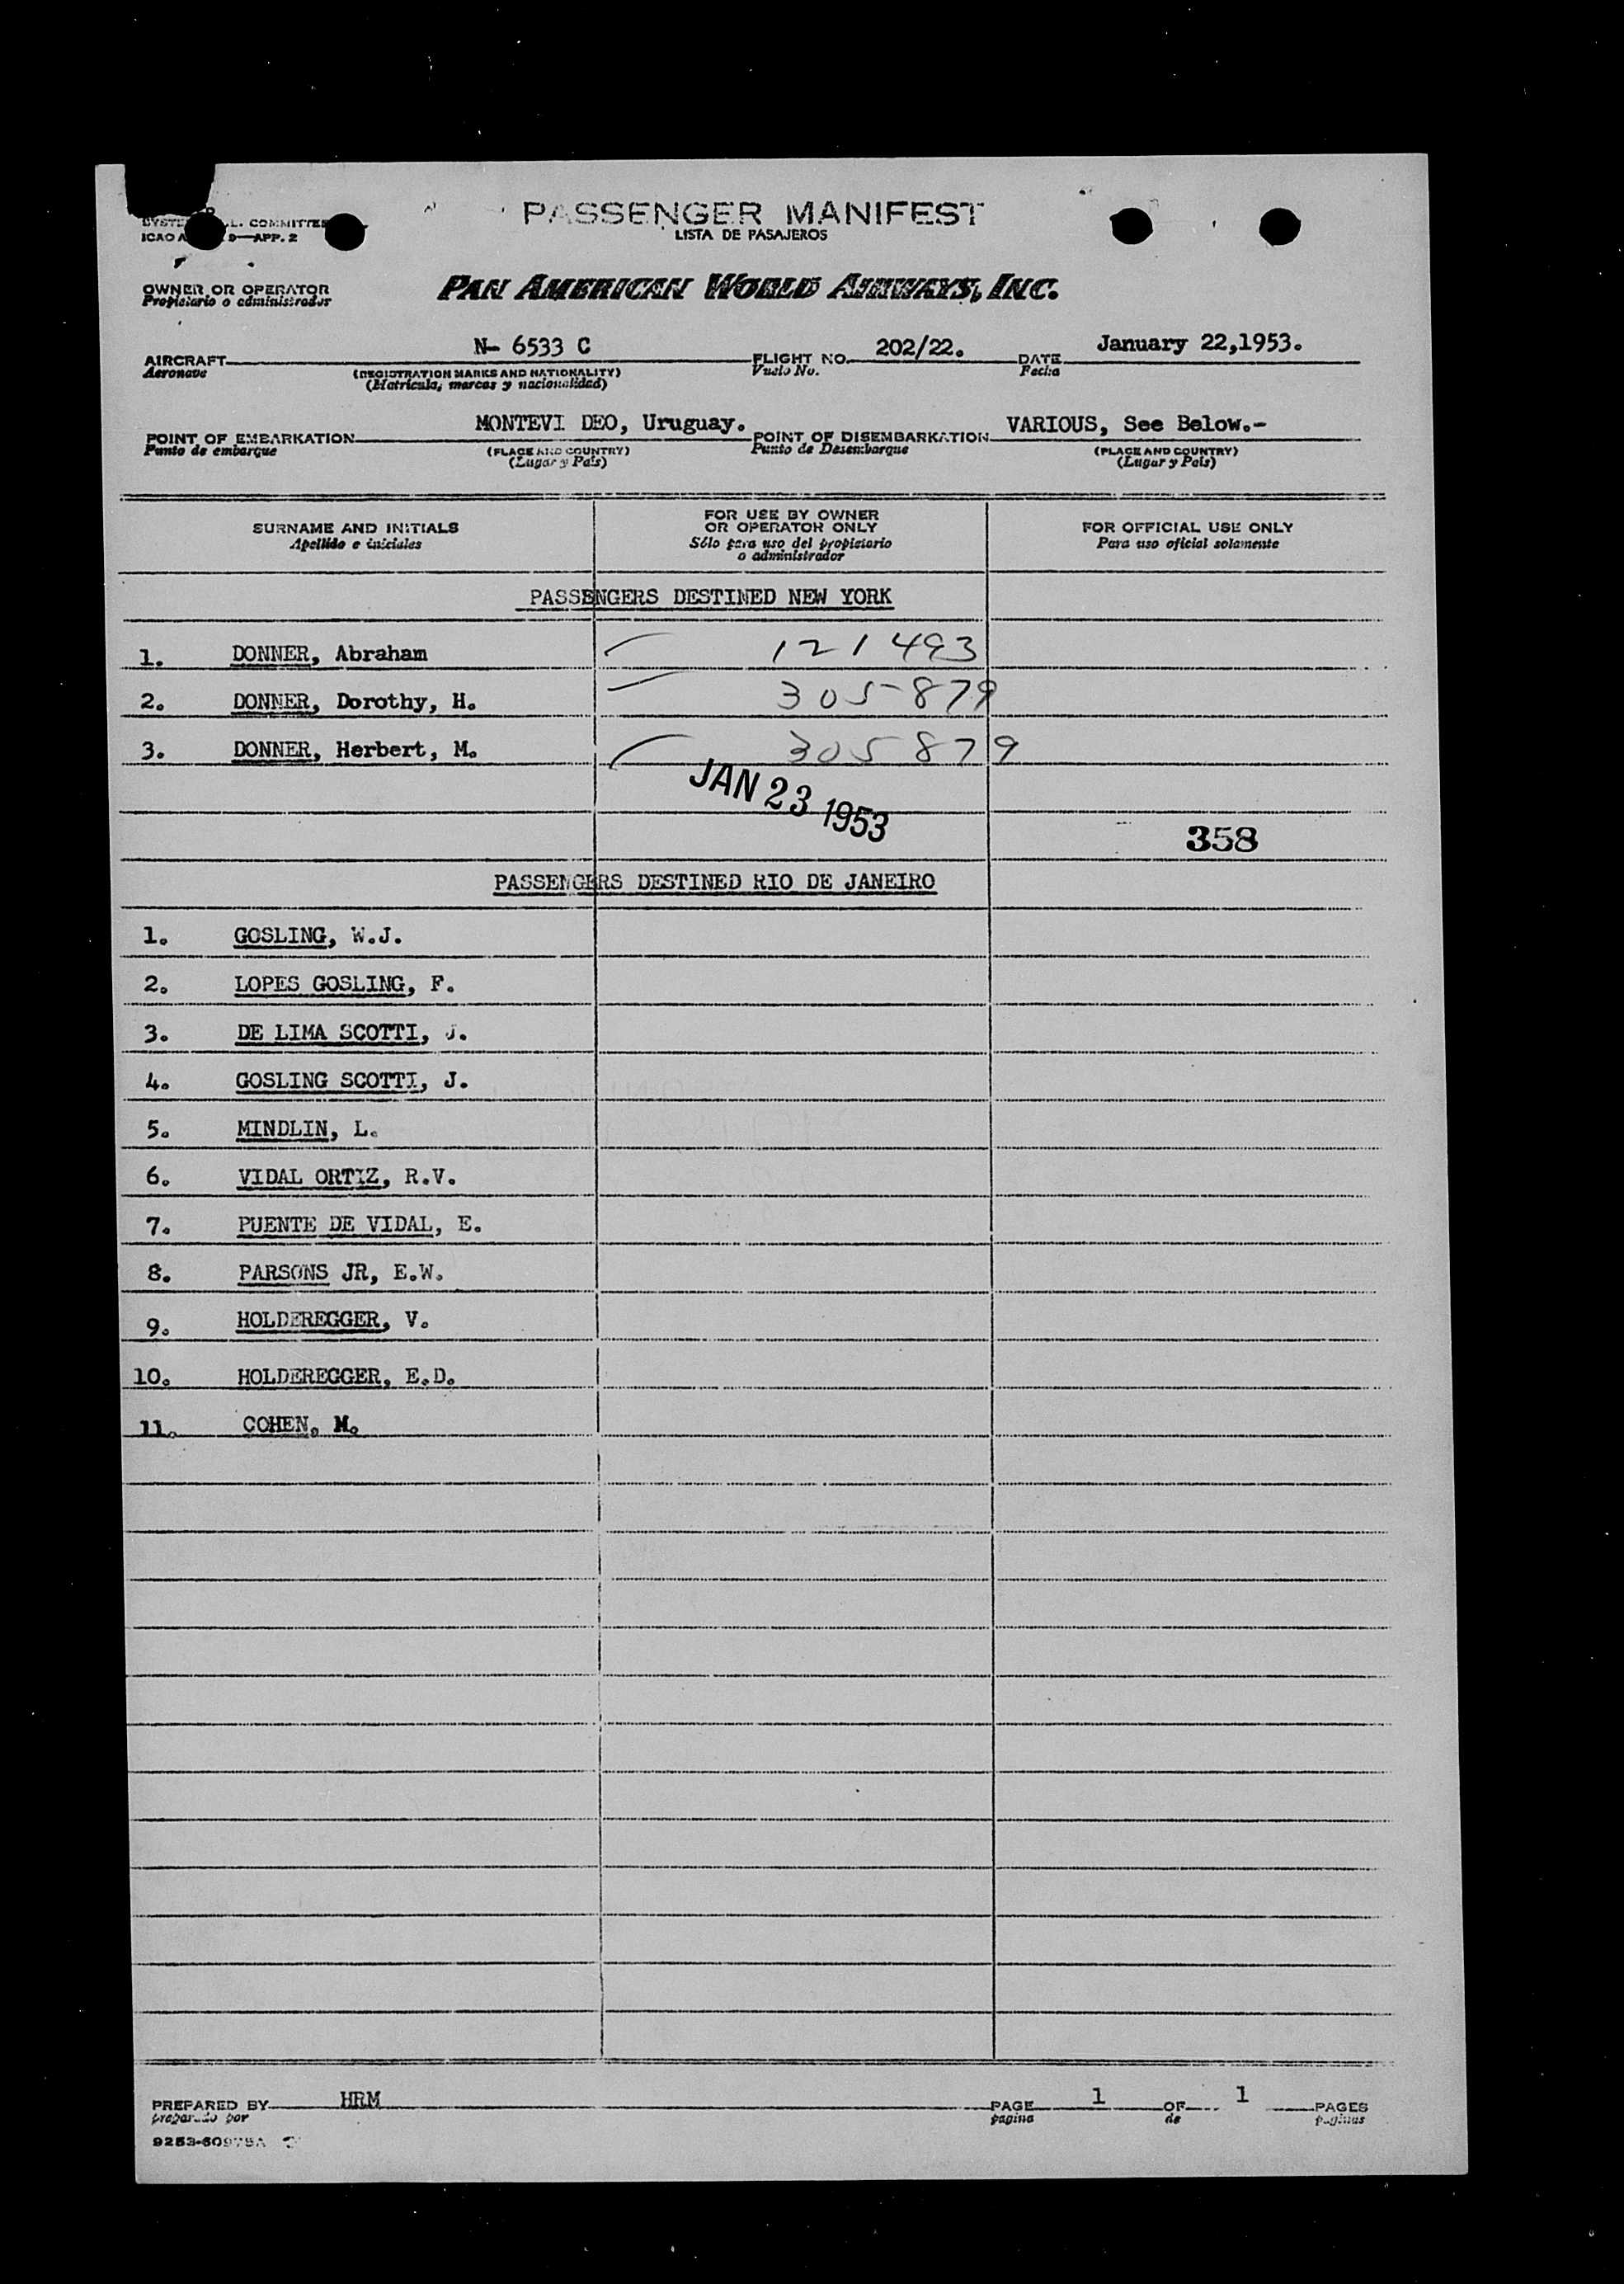 PASSENGER MANIFEST
LISTA DE PASAJEROS
L. COMMITTEE
ICAO 9—APP. 2
OWNER OR OPERATOR
Propietario o administrador
PAN AMERICAN WORLD AIRWAYS, INC.
AIRCRAFT N- 6533 C FLIGHT NO. 202/22. DATE January 22,1953.
Aeronave (REGISTRATION MARKS AND NATIONALITY) Vuelo No. Fecha
(Matricula, marcas y nacionalidad)
POINT OF EMBARKATION MONTEVI DEO, Uruguay. POINT OF DISEMBARKATION VARIOUS, See Below.-
Punto de embarque (PLACE AND COUNTRY) Punto de Desembarque (PLACE AND COUNTRY)
(Lugar y País) (Lugar y País)
SURNAME AND INITIALS
Apellido e iniciales
FOR USE BY OWNER
OR OPERATOR ONLY
Sólo para uso del propietario
o administrador
FOR OFFICIAL USE ONLY
Para uso oficial solamente
PASSENGERS DESTINED NEW YORK
1. DONNER, Abraham 121493
2. DONNER, Dorothy, H. 305879
3. DONNER, Herbert, M. 305879
JAN 23 1953
358
PASSENGERS DESTINED RIO DE JANEIRO
1. GOSLING, W.J.
2. LOPES GOSLING, F.
3. DE LIMA SCOTTI, J.
4. GOSLING SCOTTI, J.
5. MINDLIN, L.
6. VIDAL ORTIZ, R.V.
7. PUENTE DE VIDAL, E.
8. PARSONS JR, E.W.
9. HOLDEREGGER, V.
10. HOLDEREGGER, E.D.
11. COHEN, M.
PREPARED BY HRM PAGE 1 OF 1 PAGES
preparado por pagina de paginas